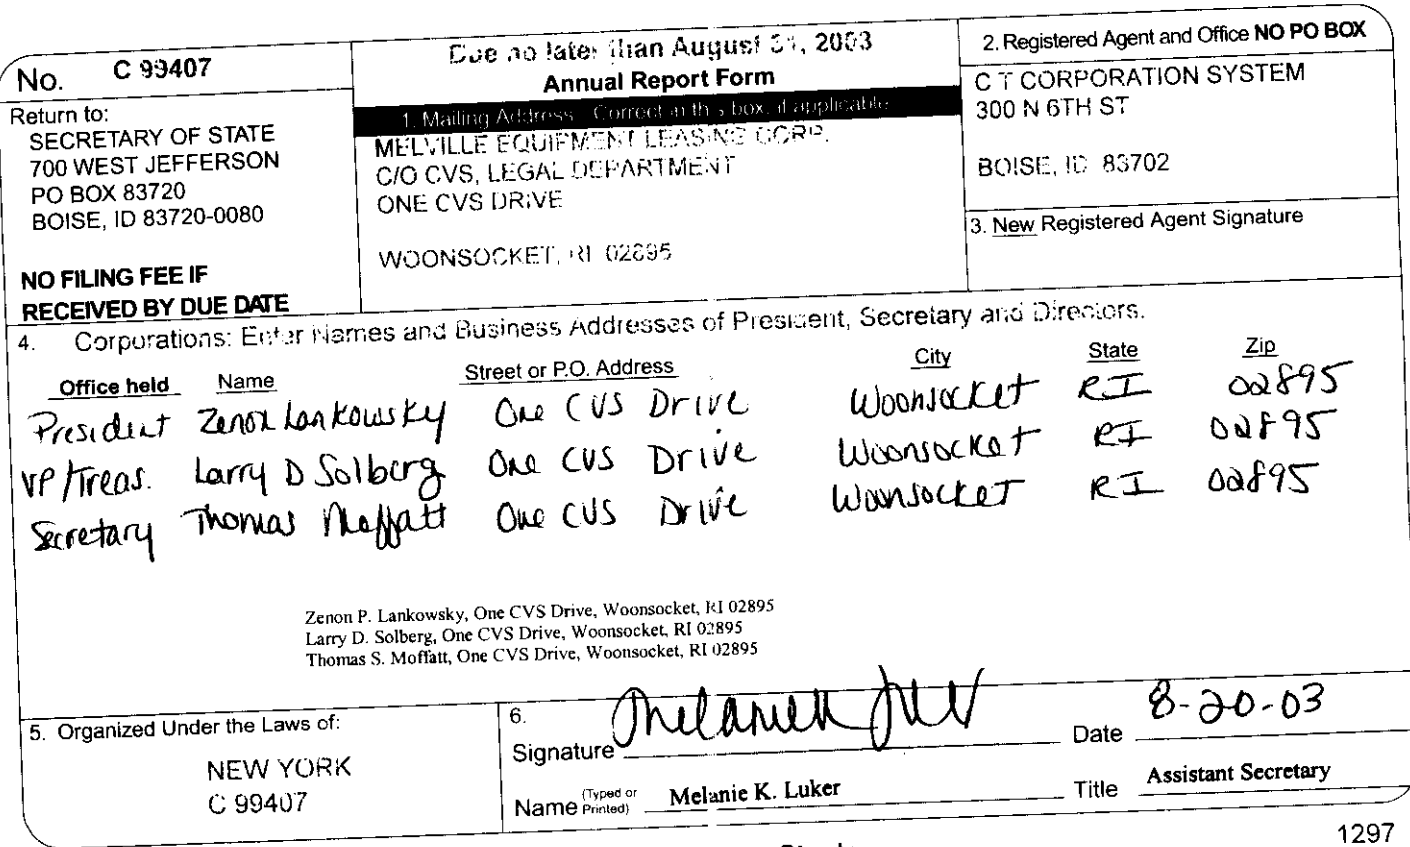 No. C 99407
Return to:
SECRETARY OF STATE
700 WEST JEFFERSON
PO BOX 83720
BOISE, ID 83720-0080
NO FILING FEE IF
RECEIVED BY DUE DATE
Due no later than August 31, 2003
Annual Report Form
1. Mailing Address Correct in this box, if applicable
MELVILLE EQUIPMENT LEASING CORP.
C/O CVS, LEGAL DEPARTMENT
ONE CVS DRIVE
WOONSOCKET, RI 02895
2. Registered Agent and Office NO PO BOX
C T CORPORATION SYSTEM
300 N 6TH ST
BOISE, ID 83702
3. New Registered Agent Signature
4. Corporations: Enter Names and Business Addresses of President, Secretary and Directors.
Office held Name Street or P.O. Address City State Zip
President Zenon Lankowsky One CVS Drive Woonsocket RI 02895
VP/Treas. Larry D Solberg One CVS Drive Woonsocket RI 02895
Secretary Thomas Moffatt One CVS Drive Woonsocket RI 02895
Zenon P. Lankowsky, One CVS Drive, Woonsocket, RI 02895
Larry D. Solberg, One CVS Drive, Woonsocket, RI 02895
Thomas S. Moffatt, One CVS Drive, Woonsocket, RI 02895
5. Organized Under the Laws of:
NEW YORK
C 99407
6.
Signature Date 8-20-03
Name (Typed or Printed) Melanie K. Luker Title Assistant Secretary
1297